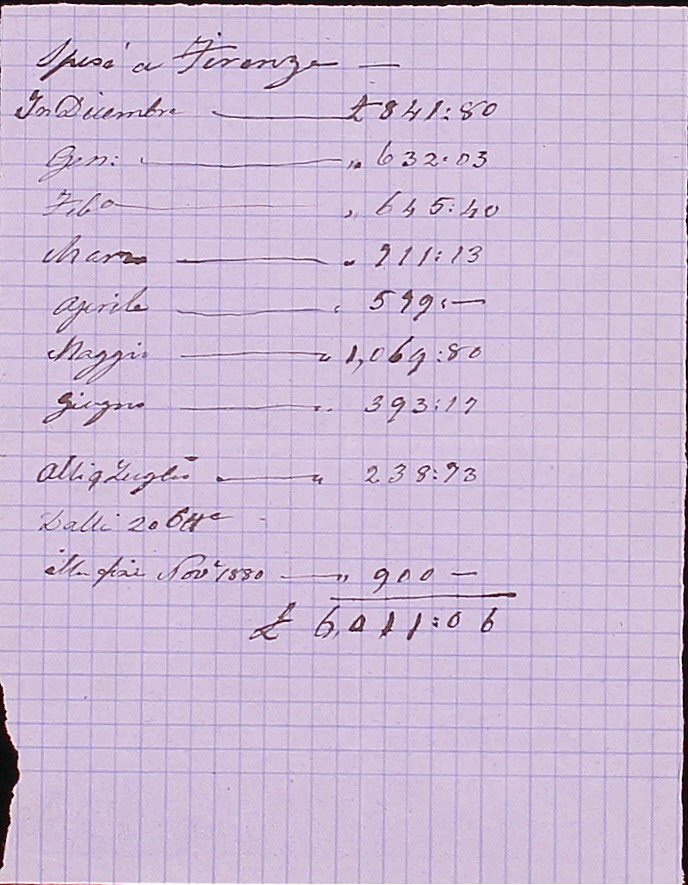 Spese a Firenze —
In Dicembre — £ 841:80
Gen: — „ 632:03
Febo — „ 645:40
Marzo — „ 711:13
Aprile — „ 579:—
Maggio — „ 1,069:80
Giugno — „ 393:17
Alli 9 Luglio — „ 238:73
Dalli 20 6tt<sup>e</sup>
alla fine Nov<sup>e</sup> 1880 — „ 900 —
£ 6,011:06